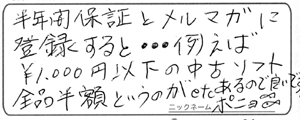 半年間保証とメルマガに
登録すると・・・例えば
¥1.000円以下の中古ソフト
全品半額というのがきたあるので良いです
ニックネーム ポニョ